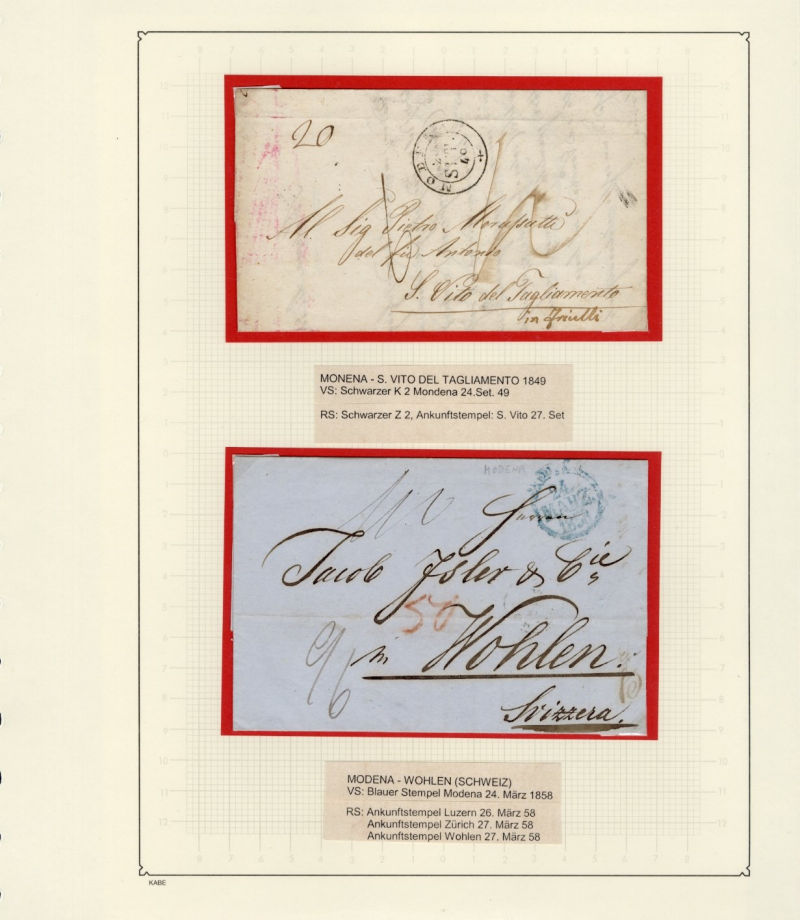 20
MODENA
SET.
Al Sig Pietro
del fu Antonio
S. Vito del Tagliamento
in Friulli
MONENA - S. VITO DEL TAGLIAMENTO 1849
VS: Schwarzer K 2 Mondena 24.Set. 49
RS: Schwarzer Z 2, Ankunftstempel: S. Vito 27. Set
MODENA
24
MARZ.
Herren
Jacob Isler & Cie
50
in Wohlen.
96
Svizzera.
MODENA - WOHLEN (SCHWEIZ)
VS: Blauer Stempel Modena 24. März 1858
RS: Ankunftstempel Luzern 26. März 58
Ankunftstempel Zürich 27. März 58
Ankunftstempel Wohlen 27. März 58
KABE